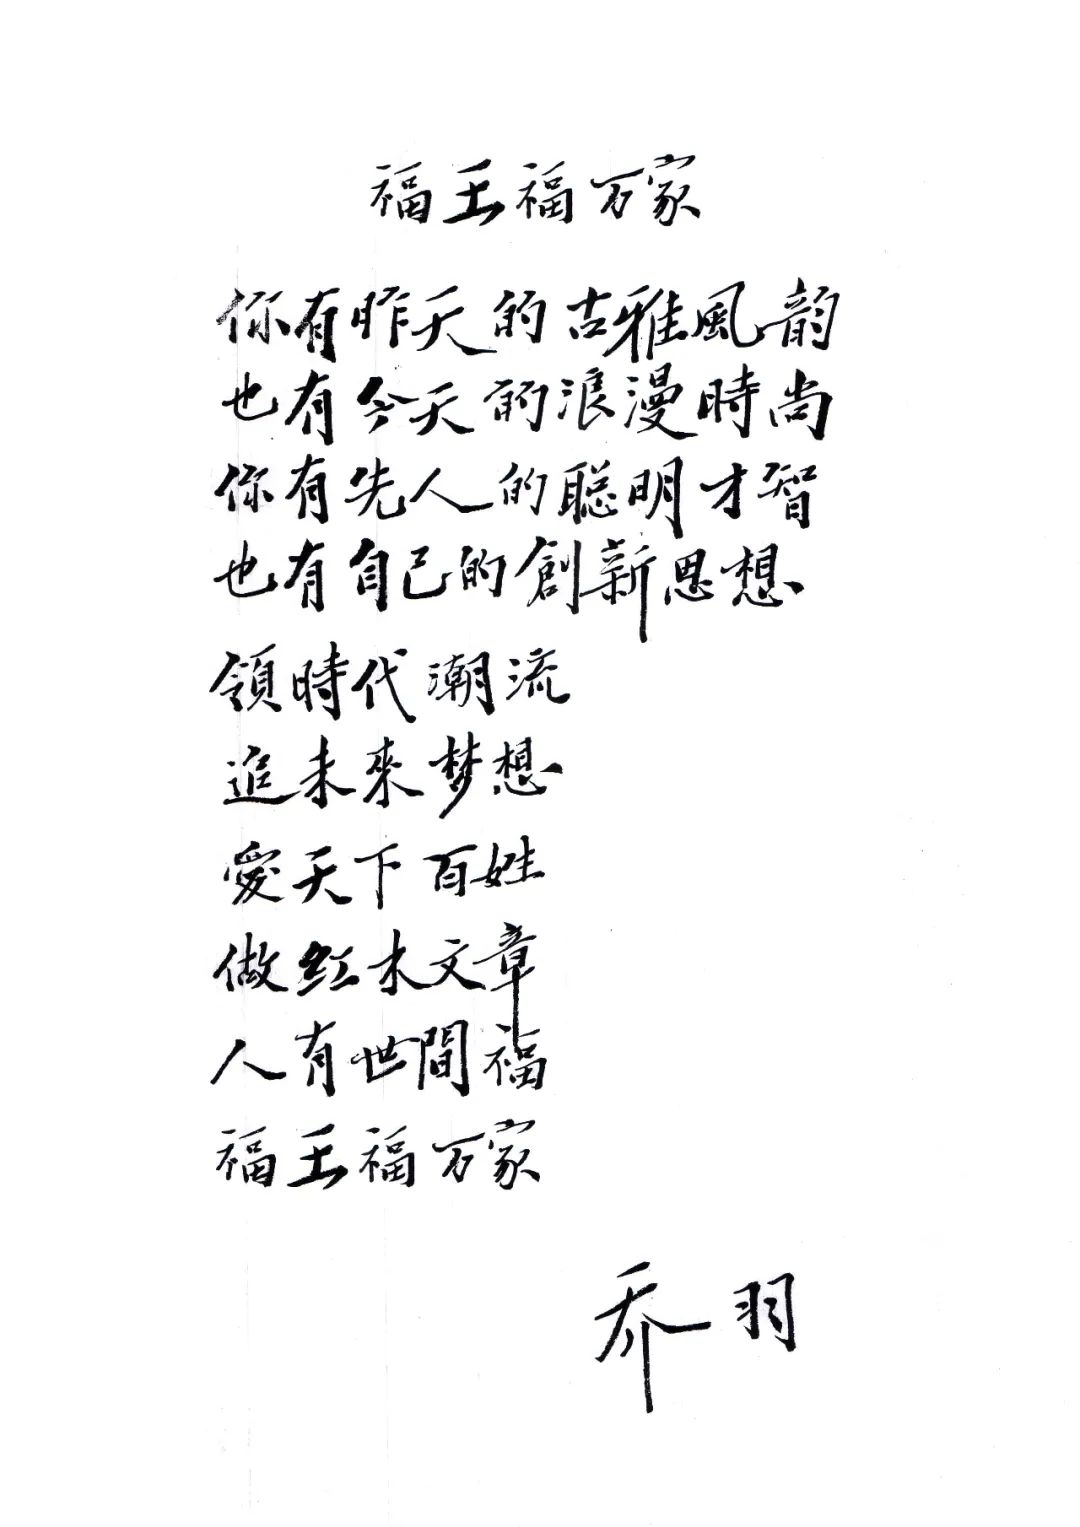 福王福万家
你有昨天的古雅風韵
也有今天的浪漫時尚
你有先人的聪明才智
也有自己的創新思想
領時代潮流
追未來梦想
愛天下百姓
做红木文章
人有世間福
福王福万家
乔羽